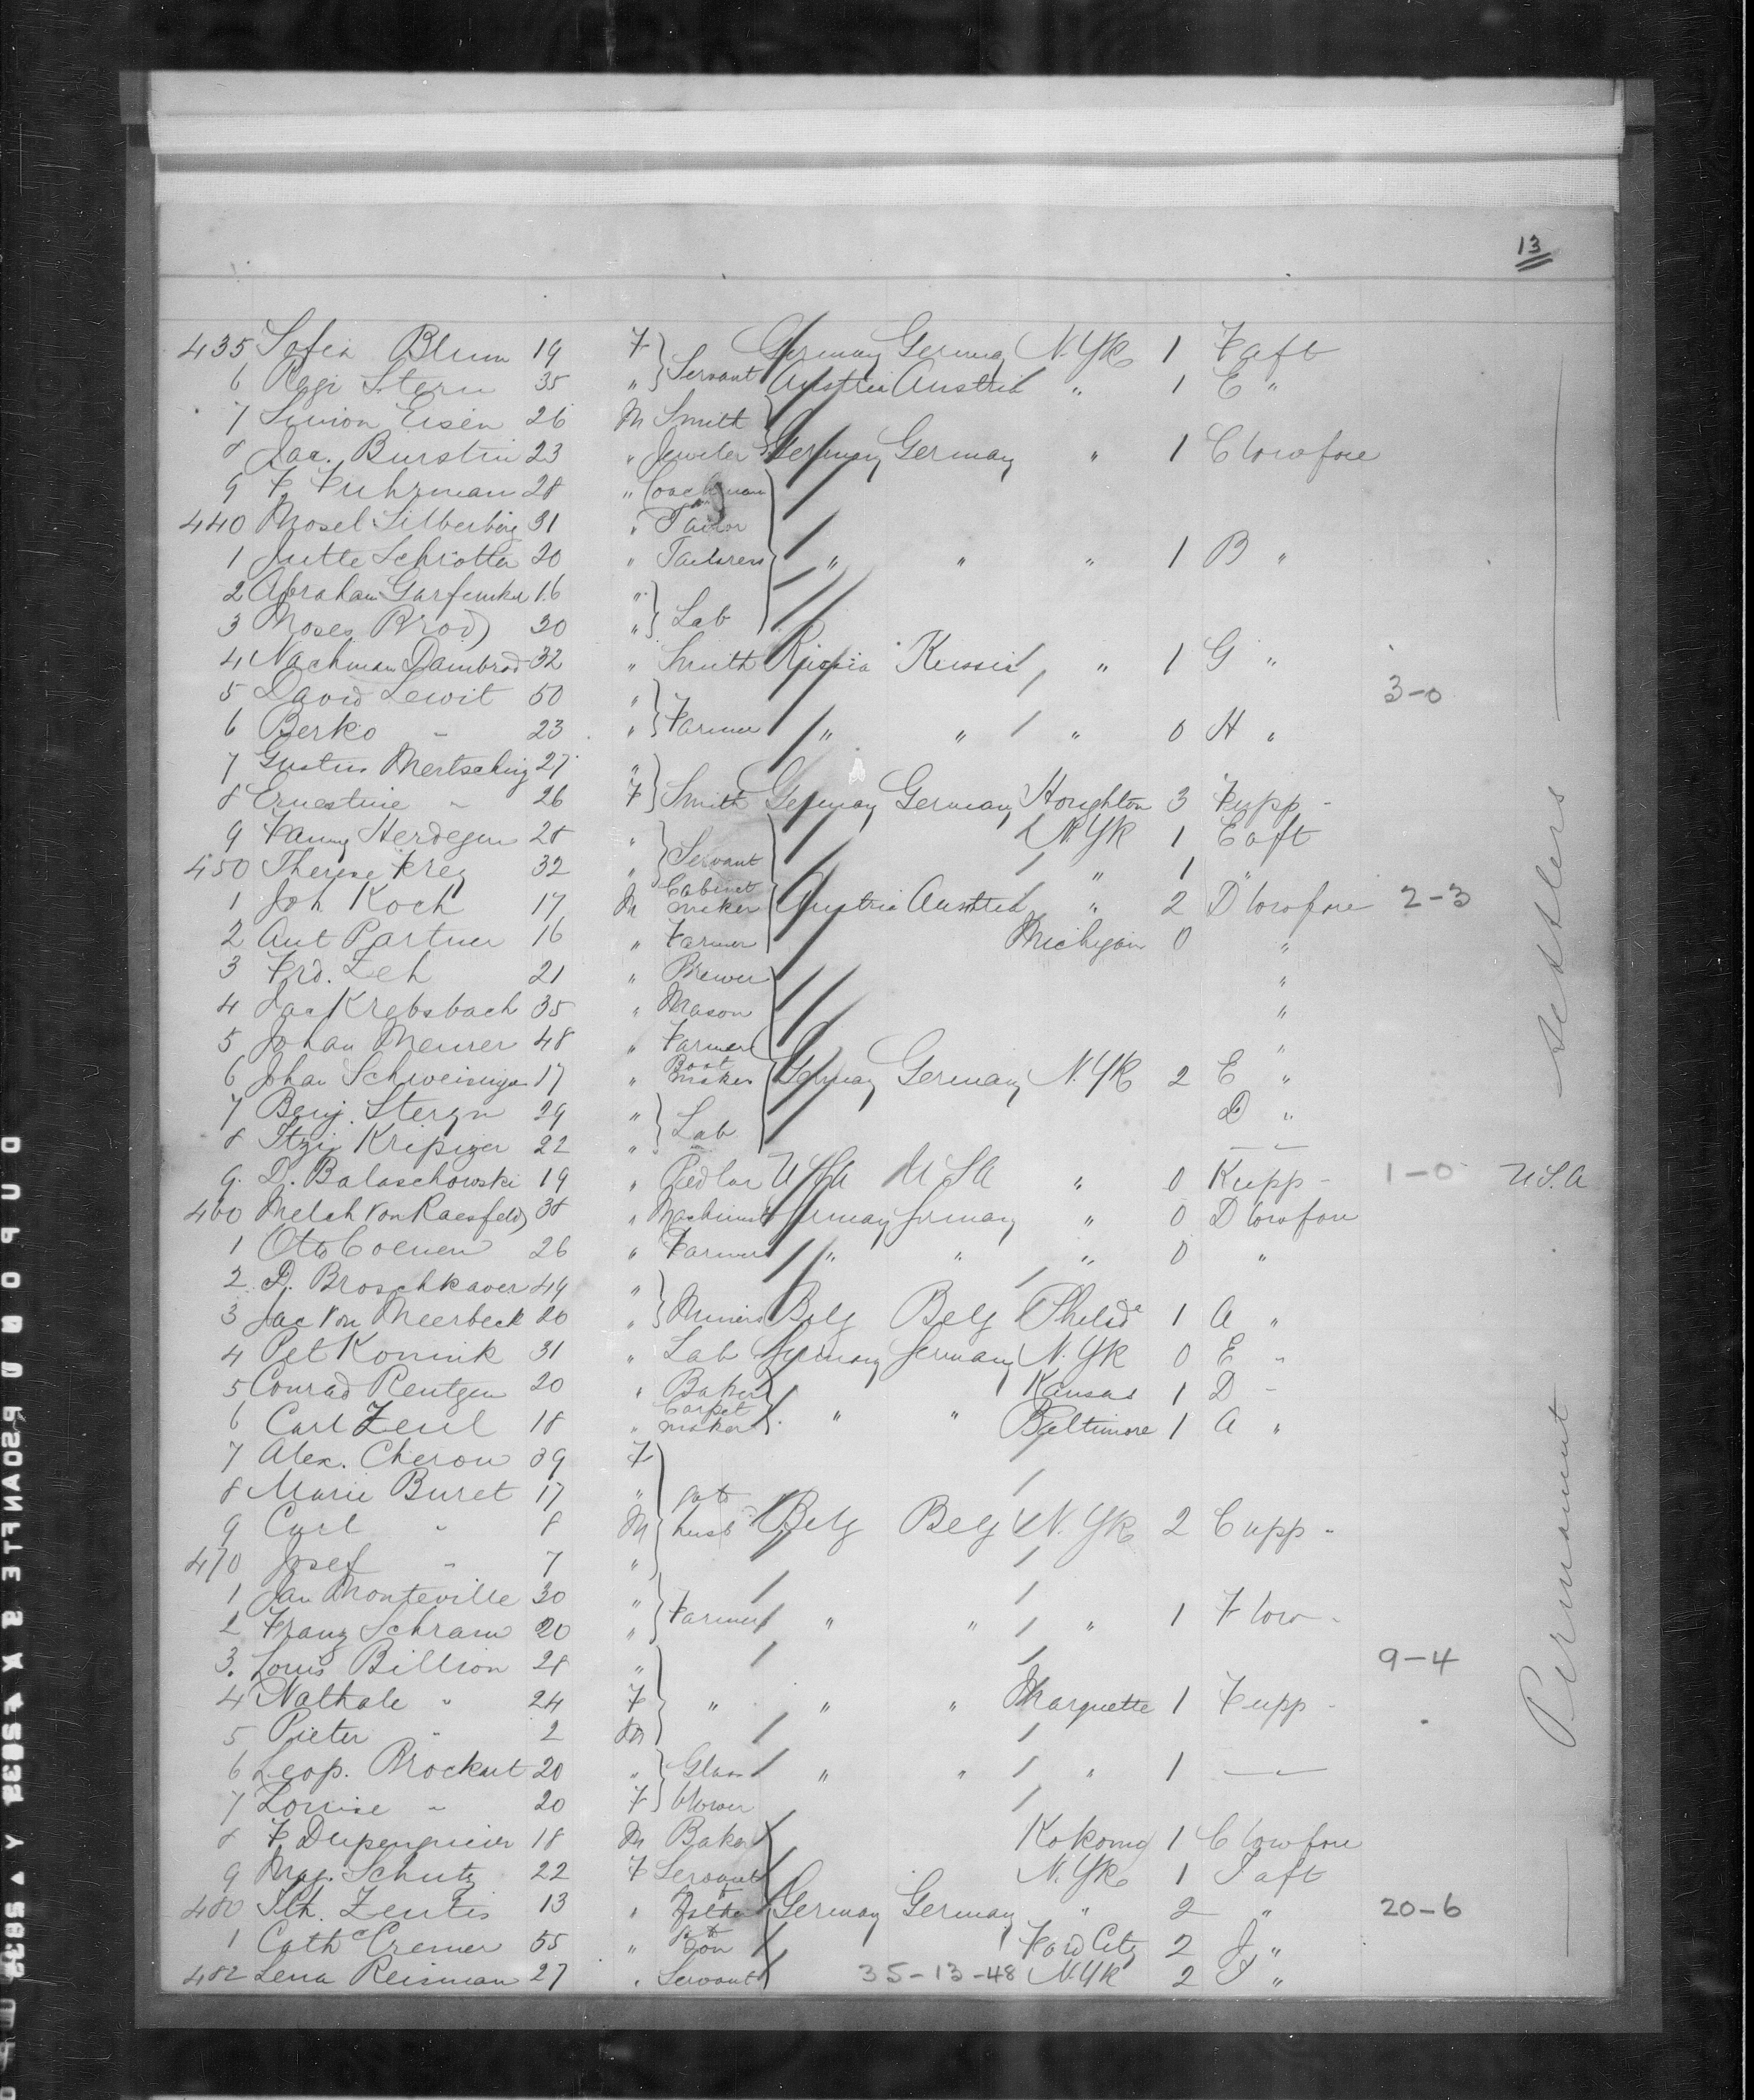 13
435 Sofia Blum 19 F Servant Germany Germany N.Yk 1 F aft
6 Regi Stern 35 " Austria Austria " 1 E "
7 Simon Eisen 26 M Smith
8 Jac. Burstin 23 " Jeweler Germany Germany " 1 C lowfore
9 F Fuhrman 28 " Coachman
440 Mosel Silberberg 31 " Tailor
1 Jutte Schrotter 20 " Tailoress " " " 1 B "
2 Abraham Garfunkel 16 " Lab
3 Moses Brod 30 "
4 Nachman Dambrod 32 " Smith Russia Russia " 1 G "
5 David Lewit 50 " Farmer 3-0
6 Berko " 23 " " " " 0 H "
7 Gustav Mertsching 27 " Smith
8 Ernestine " 26 F Germany Germany Houghton 3 F upp "
9 Fanny Herdegen 28 " Servant N.Yk 1 E aft
450 Therese Frey 32 " " 1 "
1 Joh Koch 17 M Cabinet maker Austria Austria " 2 D lowfore 2-3
2 Ant Partner 16 " Farmer Michigan 0 "
3 Frd. Zeh 21 " Brewer "
4 Jac Krebsbach 35 " Mason "
5 Johan Meurer 48 " Farmer "
6 Johan 17 " Boot maker Germany Germany N.Yk 2 E "
7 Benj. Stergn 29 " Lab D "
8 Itzig 22 " "
9 D. Balaschowski 19 " Pedlar USA USA " 0 K upp " 1-0 USA
460 Melch Von Raesfeld 38 " Machinist Germany Germany " 0 D lowfore
1 Otto Coenen 26 " Farmer " " " 0 "
2 D. Broschkaver 49 " Miners
3 Jac Von Meerbeck 20 " Belg Belg Philade 1 A "
4 Pet Konink 31 " Lab Germany Germany N.Yk 0 E "
5 Conrad Rentgen 20 " Baker Kansas 1 D "
6 Carl Zeul 18 " Carpet maker " " Baltimore 1 A "
7 Alex. Cheron 39 F
8 Marie Buret 17 "
9 Carl " 8 M husb Belg Belg N.Yk 2 C upp "
470 Josef " 7 "
1 Jan Monteville 30 " Farmer " " " 1 F low "
2 Franz Schram 20 "
3. Louis Billion 28 " 9-4
4 Nathale " 24 F " " " Marquette 1 F upp "
5 Pieter " 2 M
6 Leop. Brockut 20 " Glass blower " " " 1 "
7 Louise " 20 F
8 F 18 M Baker Kokomo 1 C lowfore
9 Mag. Schutz 22 F Servant N.Yk 1 J aft
480 Zentis 13 " Germany Germany " 2 " 20-6
1 Cath Cremer 55 " Ford City 2 J "
482 Lena Reisman 27 " Servant 35-13-48 N.Yk 2 J "
Permanent Settlers